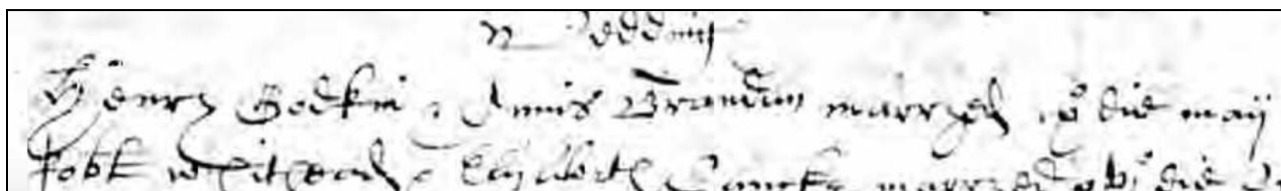 Weddings
Henry Godkin & Annis Brandon marryed die maij
Robt Whithead & Elizabeth marryed die